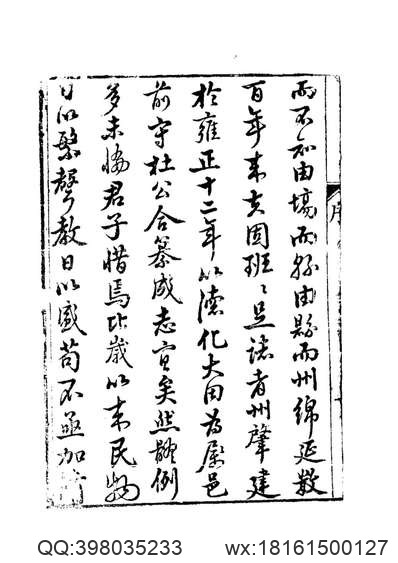 序
而不知由塲而縣由縣而州綿延數
百年來固班〻足誌者州肇建
於雍正十二年以德化大田為屬邑
前守杜公合纂成志宜矣然體例
多未協君子惜焉比歲以來民物
日以繁聲教日以盛苟不亟加
QQ:398035233 wx:18161500127